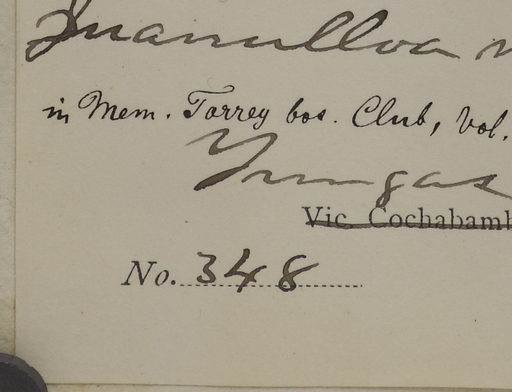 Juanulloa
in Mem. Torrey bot. Club, Vol.
Yungas
Vic. Cochabamb
No. 348